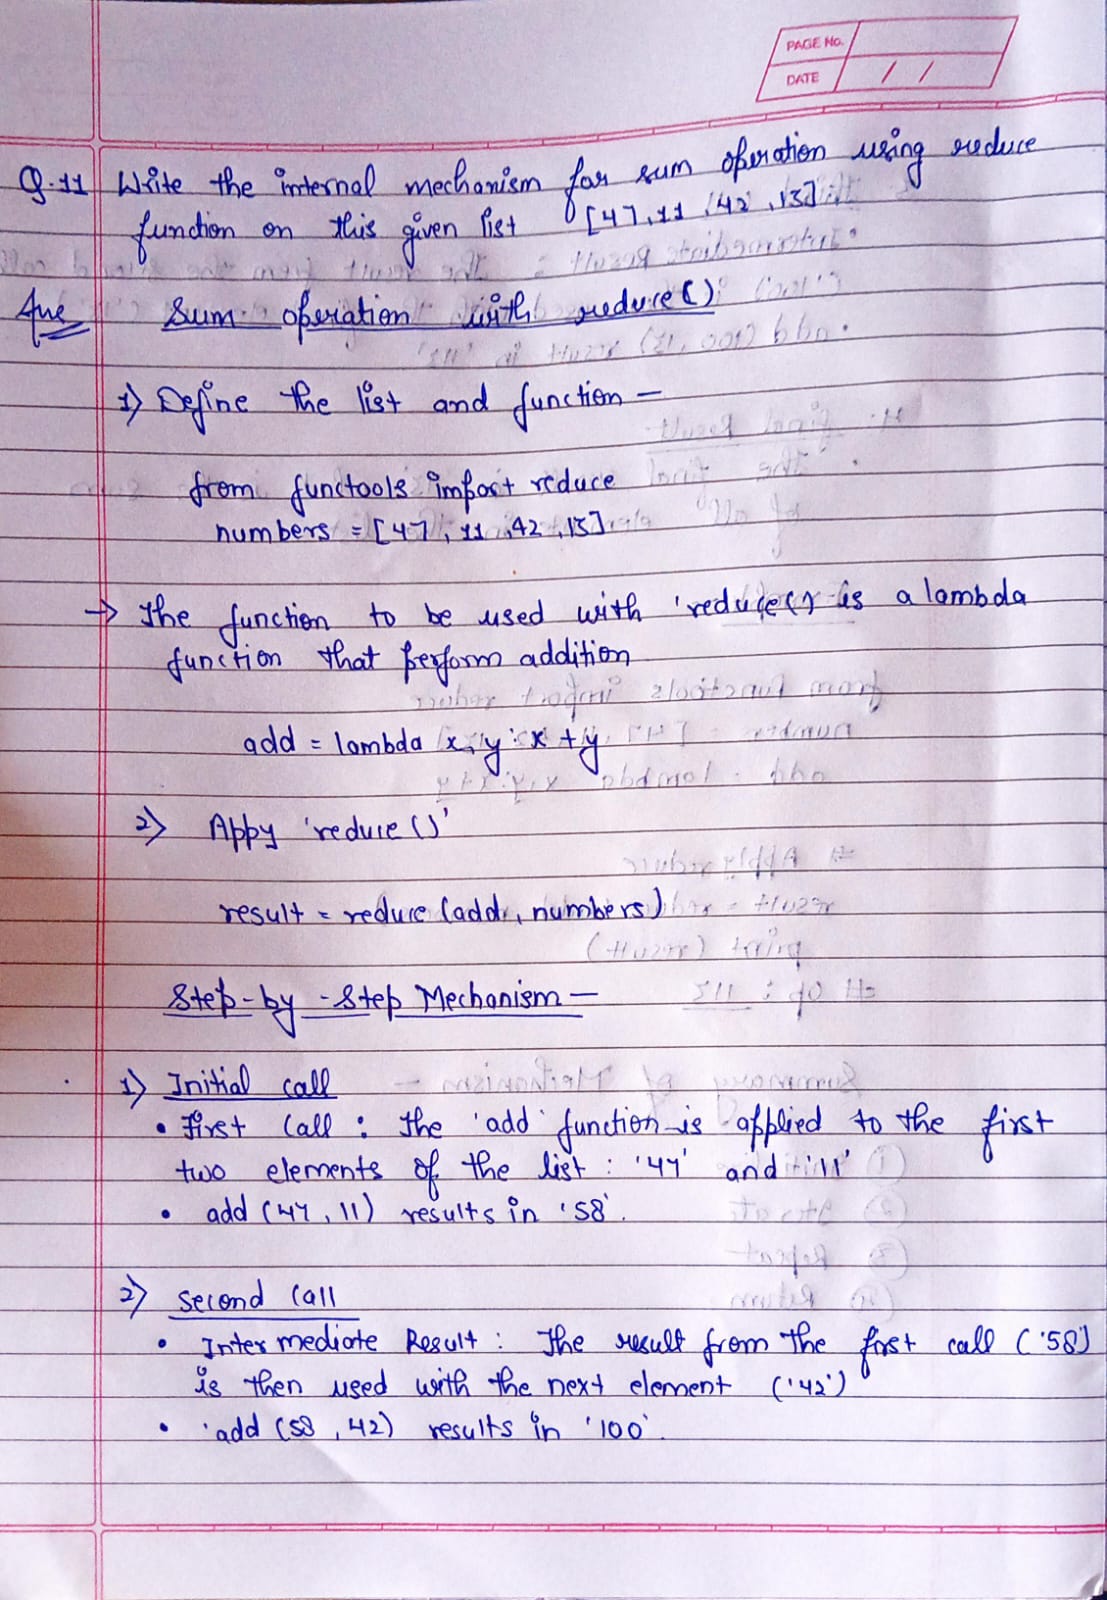 PAGE No.
DATE / /
Q.11 Write the internal mechanism for sum operation using reduce
function on this given list [47, 11, 42, 13]
Ans Sum operation with reduce()
1) Define the list and function –
from functools import reduce
numbers = [47, 11, 42, 13]
→ The function to be used with 'reduce()' is a lambda
function that perform addition
add = lambda x, y : x + y
2) Appy 'reduce()'
result = reduce (add, numbers)
Step-by-Step Mechanism –
1) Initial call
• First Call : The 'add' function is applied to the first
two elements of the list : '47' and '11'
• add (47, 11) results in '58'.
2) Second Call
• Intermediate Result : The result from the first call ('58')
is then used with the next element ('42')
• 'add (58, 42) results in '100'.